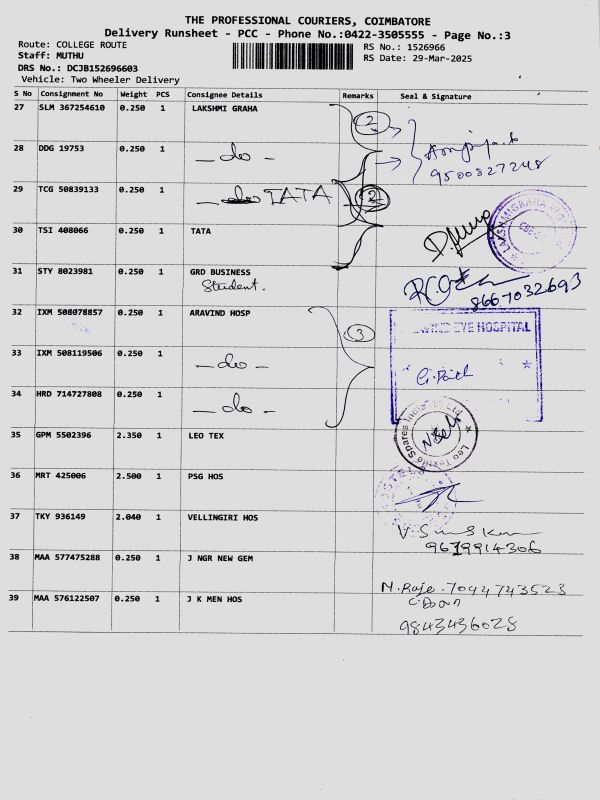 THE PROFESSIONAL COURIERS, COIMBATORE
Delivery Runsheet - PCC - Phone No.:0422-3505555 - Page No.:3
Route: COLLEGE ROUTE
RS No.: 1526966
Staff: MUTHU
RS Date: 29-Mar-2025
DRS No.: DCJB152696603
Vehicle: Two Wheeler Delivery
S No Consignment No Weight PCS Consignee Details Remarks Seal & Signature
27 SLM 367254610 0.250 1 LAKSHMI GRAHA
2
28 DDG 19753 0.250 1 - do -
9500827248
29 TCG 50839133 0.250 1 TATA 2
30 TSI 408066 0.250 1 TATA
31 STY 8023981 0.250 1 GRD BUSINESS
Student.
8667032693
32 IXM 508078857 0.250 1 ARAVIND HOSP
3
EYE HOSPITAL
33 IXM 508119506 0.250 1 - do -
34 HRD 714727808 0.250 1 - do -
35 GPM 5502396 2.350 1 LEO TEX
Leo Textile Spares India Ltd
36 MRT 425006 2.500 1 PSG HOS
37 TKY 936149 2.040 1 VELLINGIRI HOS
9679914306
38 MAA 577475288 0.250 1 J NGR NEW GEM
M. Raje. 7094743523
39 MAA 576122507 0.250 1 J K MEN HOS
9843436028